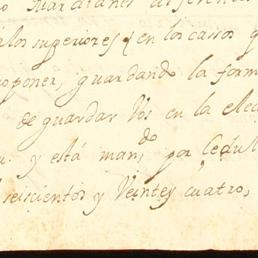 los superiores y en los cassos q
oponer, guardando la form
de guardar Vos en la elec
y está man.do por Cedul
seiscientos y Veinte y cuatro,